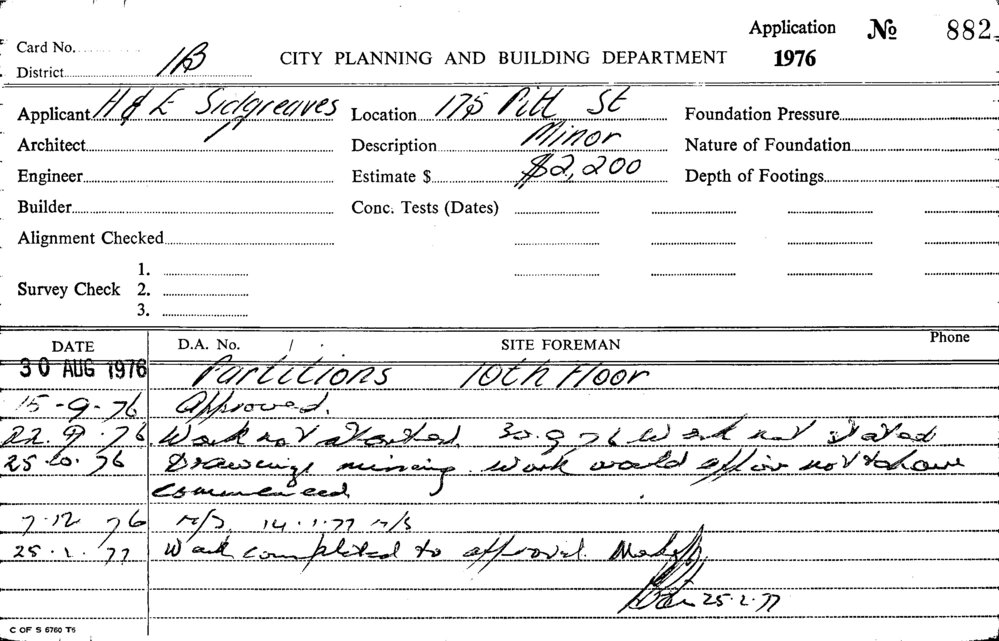 Application № 882
Card No.
1976
District 1B
CITY PLANNING AND BUILDING DEPARTMENT
Applicant H & E Sidgreaves Location 175 Pitt St Foundation Pressure
Architect Description Minor Nature of Foundation
Engineer Estimate $ $2,200 Depth of Footings
Builder Conc. Tests (Dates)
Alignment Checked
1.
Survey Check 2.
3.
DATE D.A. No. / SITE FOREMAN Phone
30 AUG 1976 Partitions 10th Floor
15-9-76 Approved.
22.9.76 Work not started. 30.9.76 Work not started
25.10.76 Drawings missing work would appear not to have
commenced
7.12 76 N/S 14.1.77 N/S
25.1.77 Work completed to approval.
25.2.77
C OF S 6760 T5